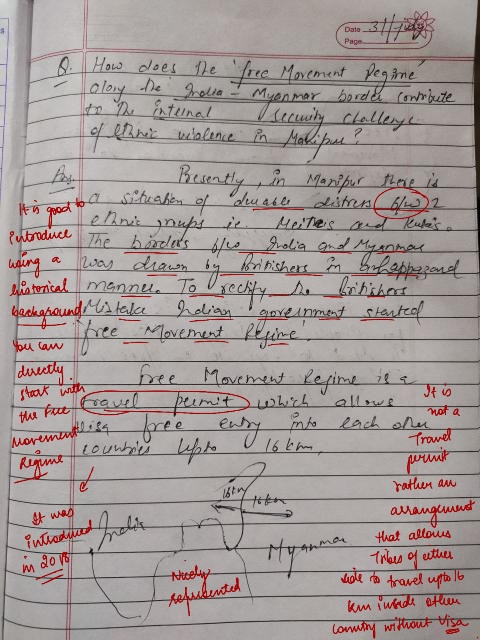 Date 31/July
Page
Q. How does the 'free Movement Regime'
along the India - Myanmar border contribute
to the internal security challenge
of ethnic violence in Manipur?
Ans. Presently, in Manipur there is
a situation of durable distress b/w 2
ethnic groups ie Meiteis and Kukis.
The borders b/w India and Myanmar
was drawn by Britishers in
manner. To rectify the Britishers
Mistake Indian government started
free Movement Regime'.
It is good to
introduce
using a
historical
background
You can
directly
start with
the Free
movement
Regime
It was
introduced
in 2018
Free Movement Regime is a
travel permit which allows
visa free entry into each other
countries upto 16 km.
It is
not a
Travel
permit
rather an
arrangement
that allows
Tribes of either
side to travel upto 16
km inside other
country without Visa
16km
16km
India
Myanmar
Nicely
represented